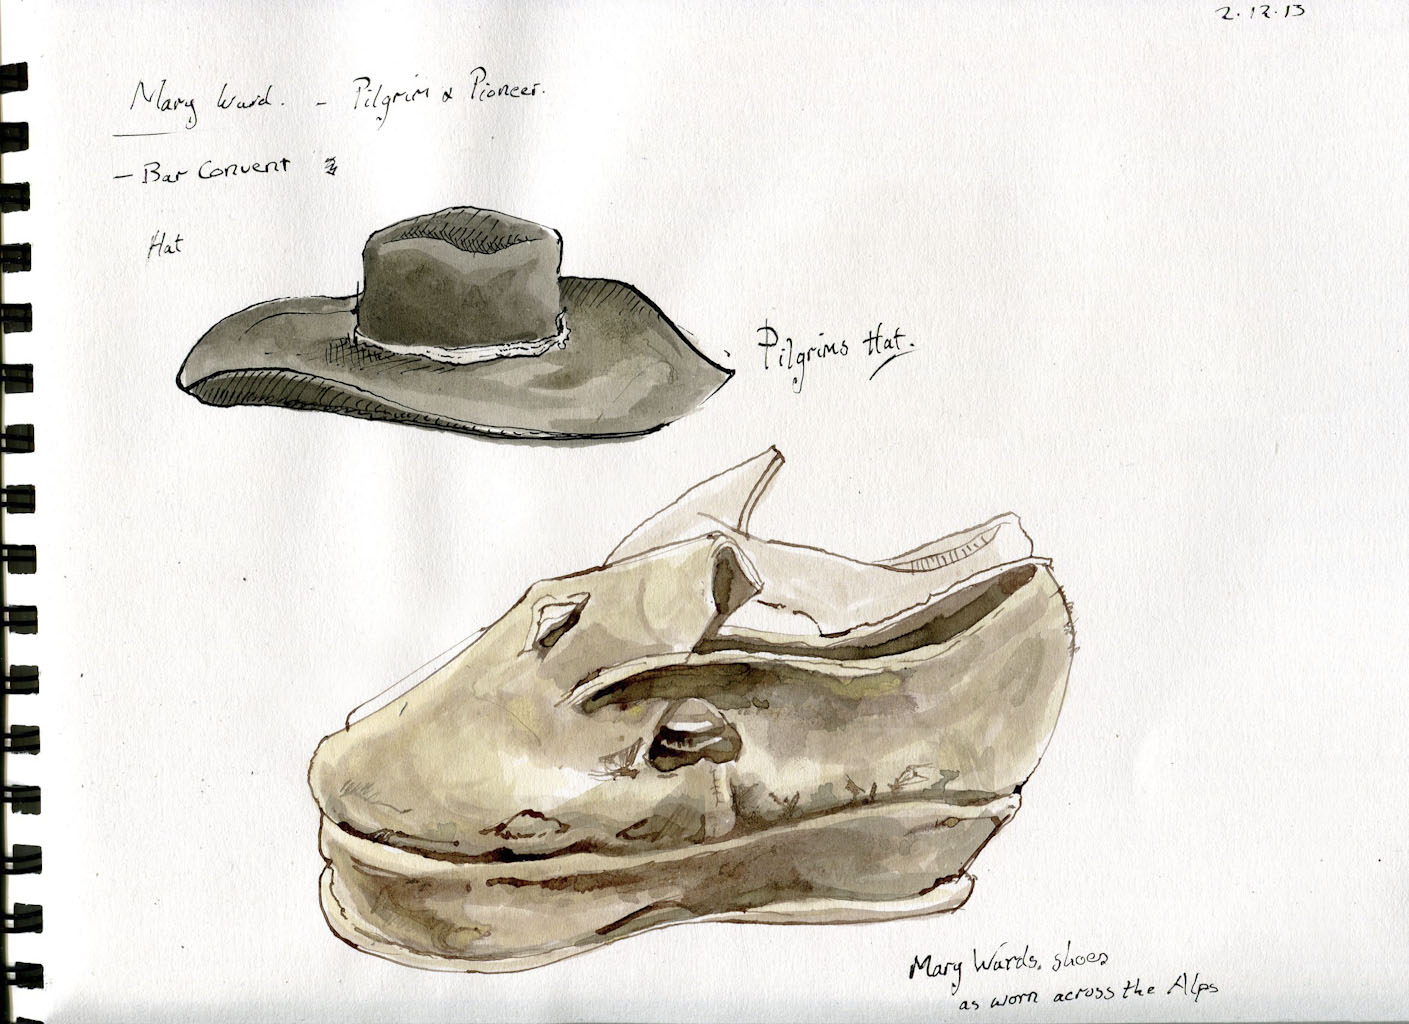 2.12.13
Mary Ward. - Pilgrim & Pioneer.
- Bar Convent
Hat
Pilgrims Hat.
Mary Wards. shoes
as worn across the Alps